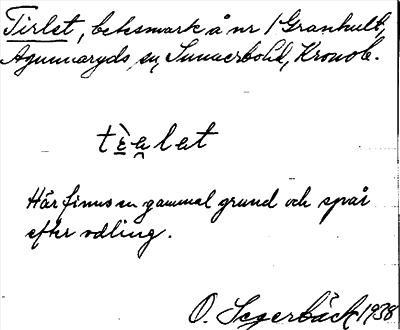 Tirlet, betesmark å nr 1 Granhult,
Agunnaryds sn, Sunnerbo hd, Kronob.
tèalat
Här finns en gammal grund och spår
efter odling.
O. Segerbäck 1938